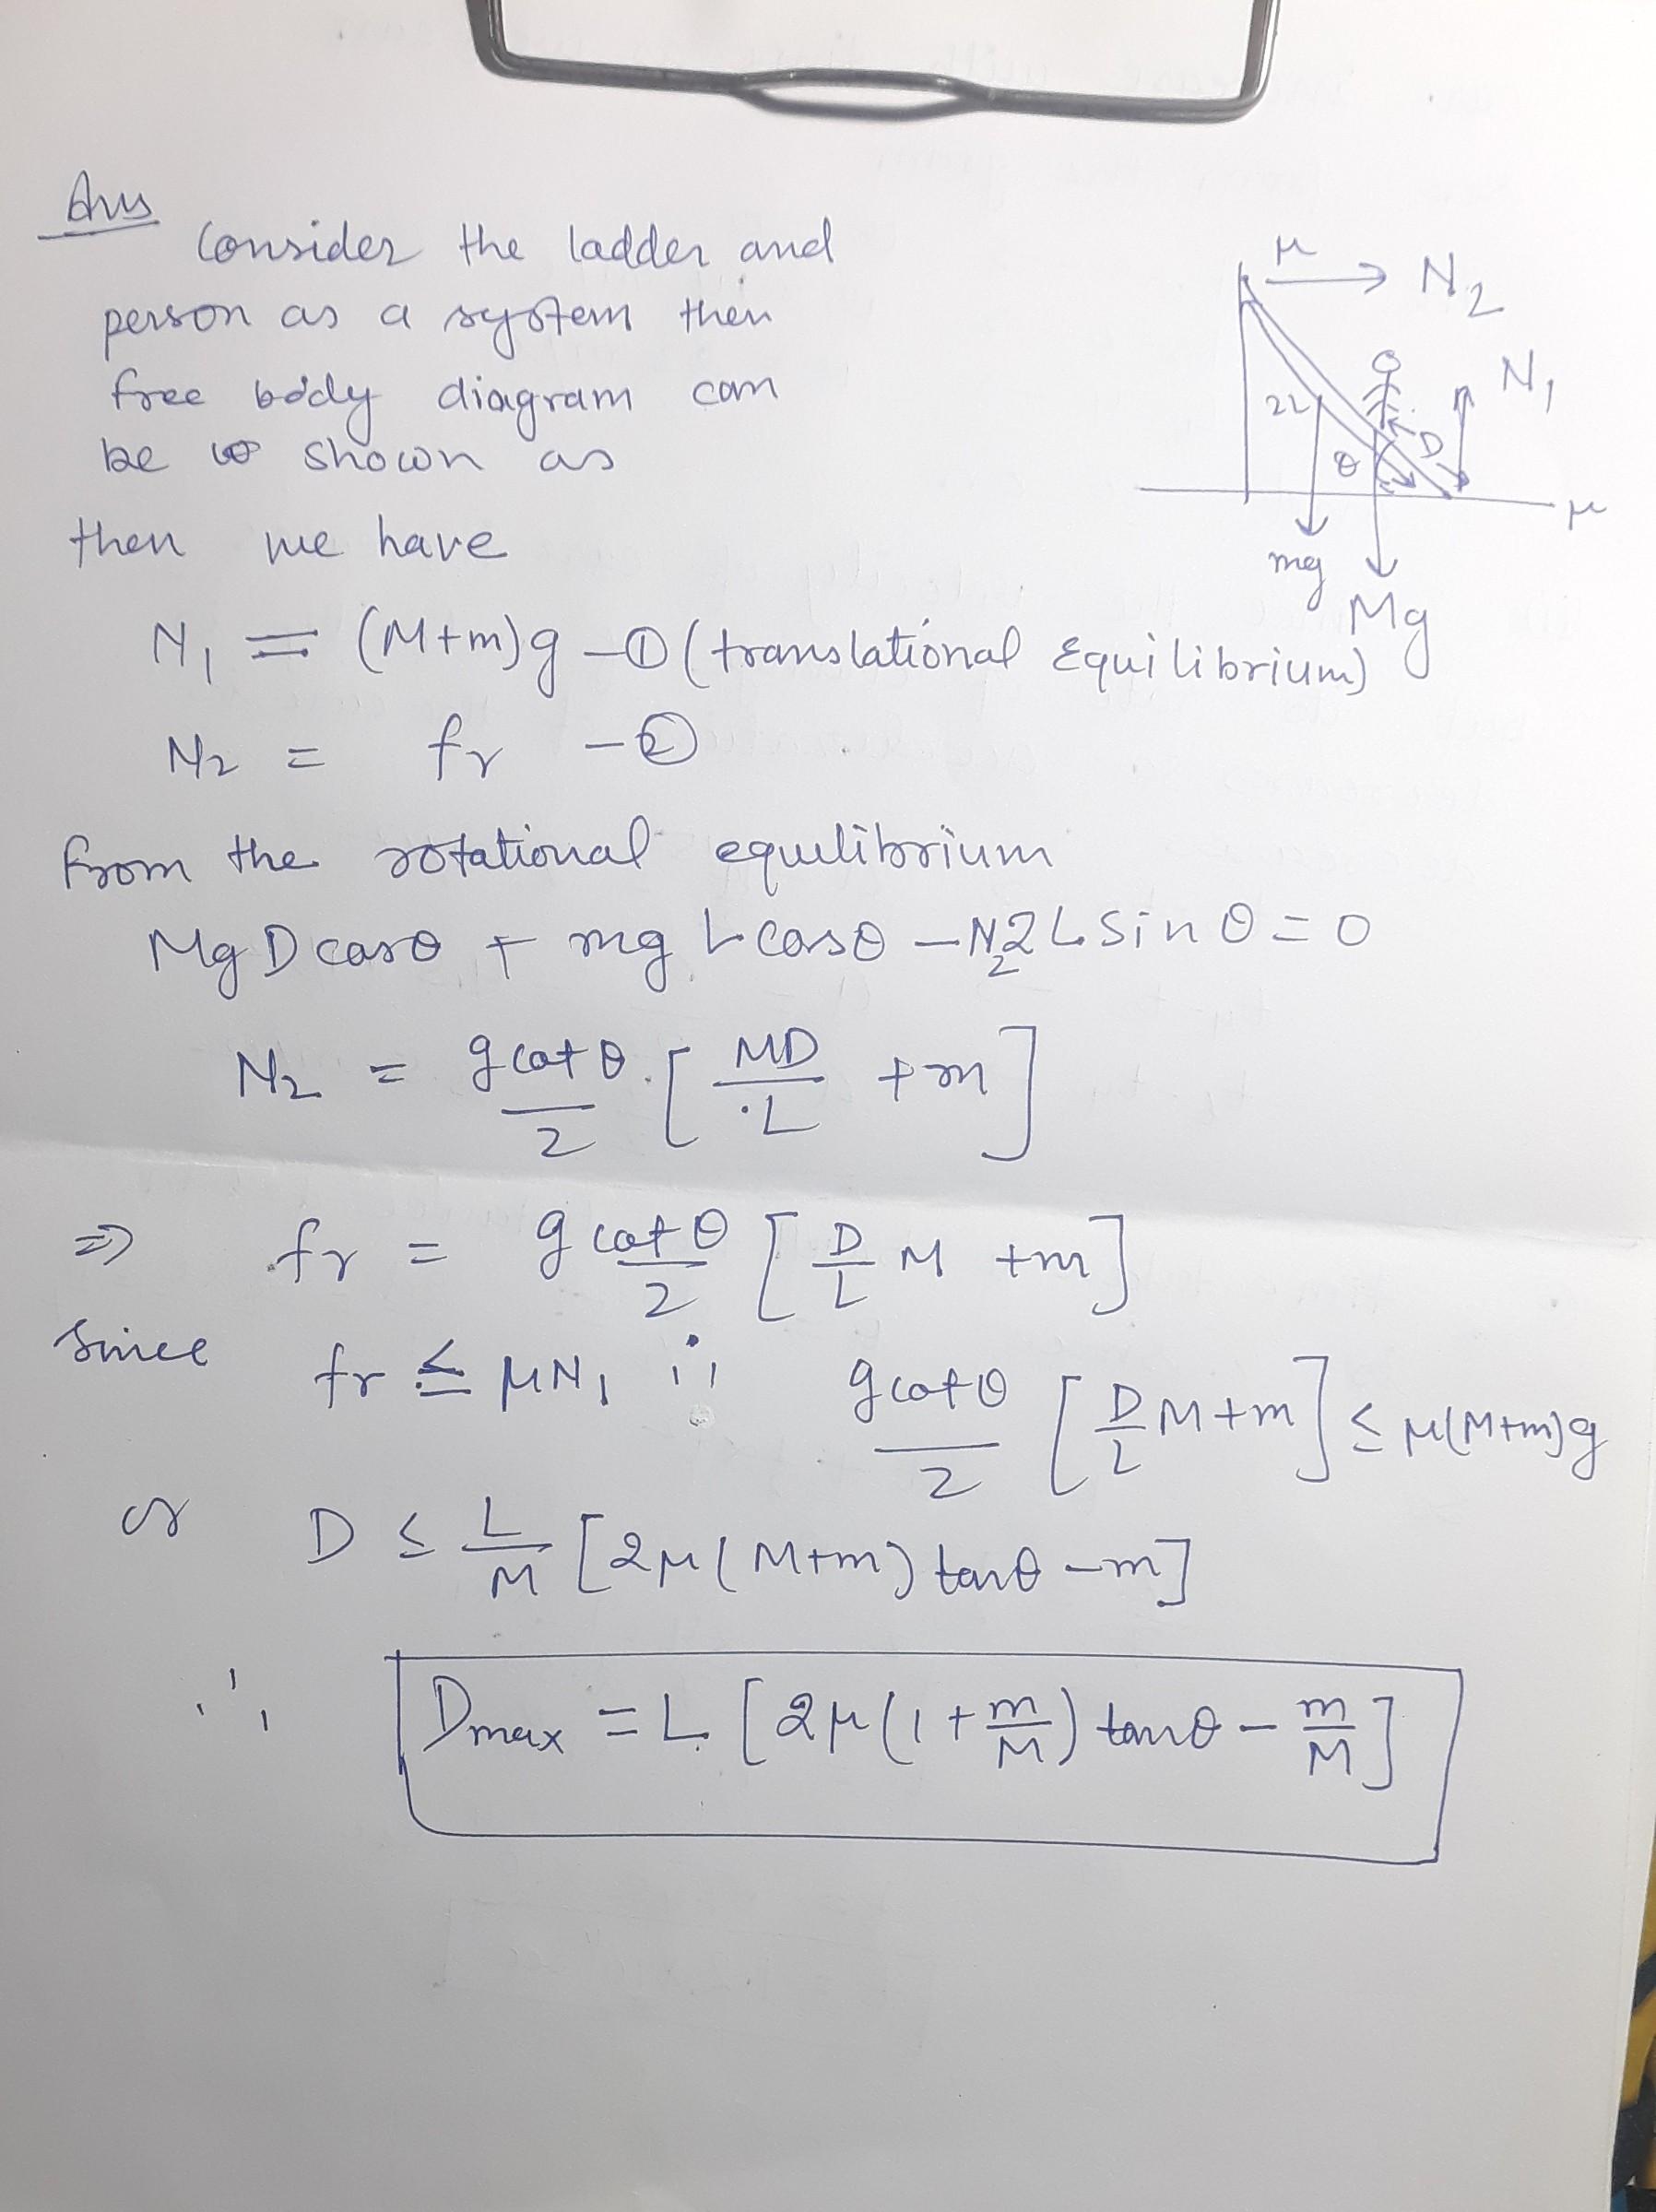 Ans
Consider the ladder and
person as a system then
free body diagram can
be shown as
μ N2
N1
2L
D
θ
μ
mg
Mg
then we have
N1 = (M+m)g –① (translational Equilibrium)
N2 = fr –②
From the rotational equilibrium
Mg D cosθ + mg L cosθ – N2 2L Sin θ = 0
N2 = g cot θ / 2 [ MD / L + m ]
⇒ fr = g cot θ / 2 [ D/L M + m ]
Since fr ≤ μN1 ∴ g cot θ / 2 [ D/L M + m ] ≤ μ(M+m)g
or D ≤ L/M [ 2μ ( M+m ) tanθ – m ]
∴ Dmax = L [ 2μ ( 1 + m/M ) tanθ – m/M ]